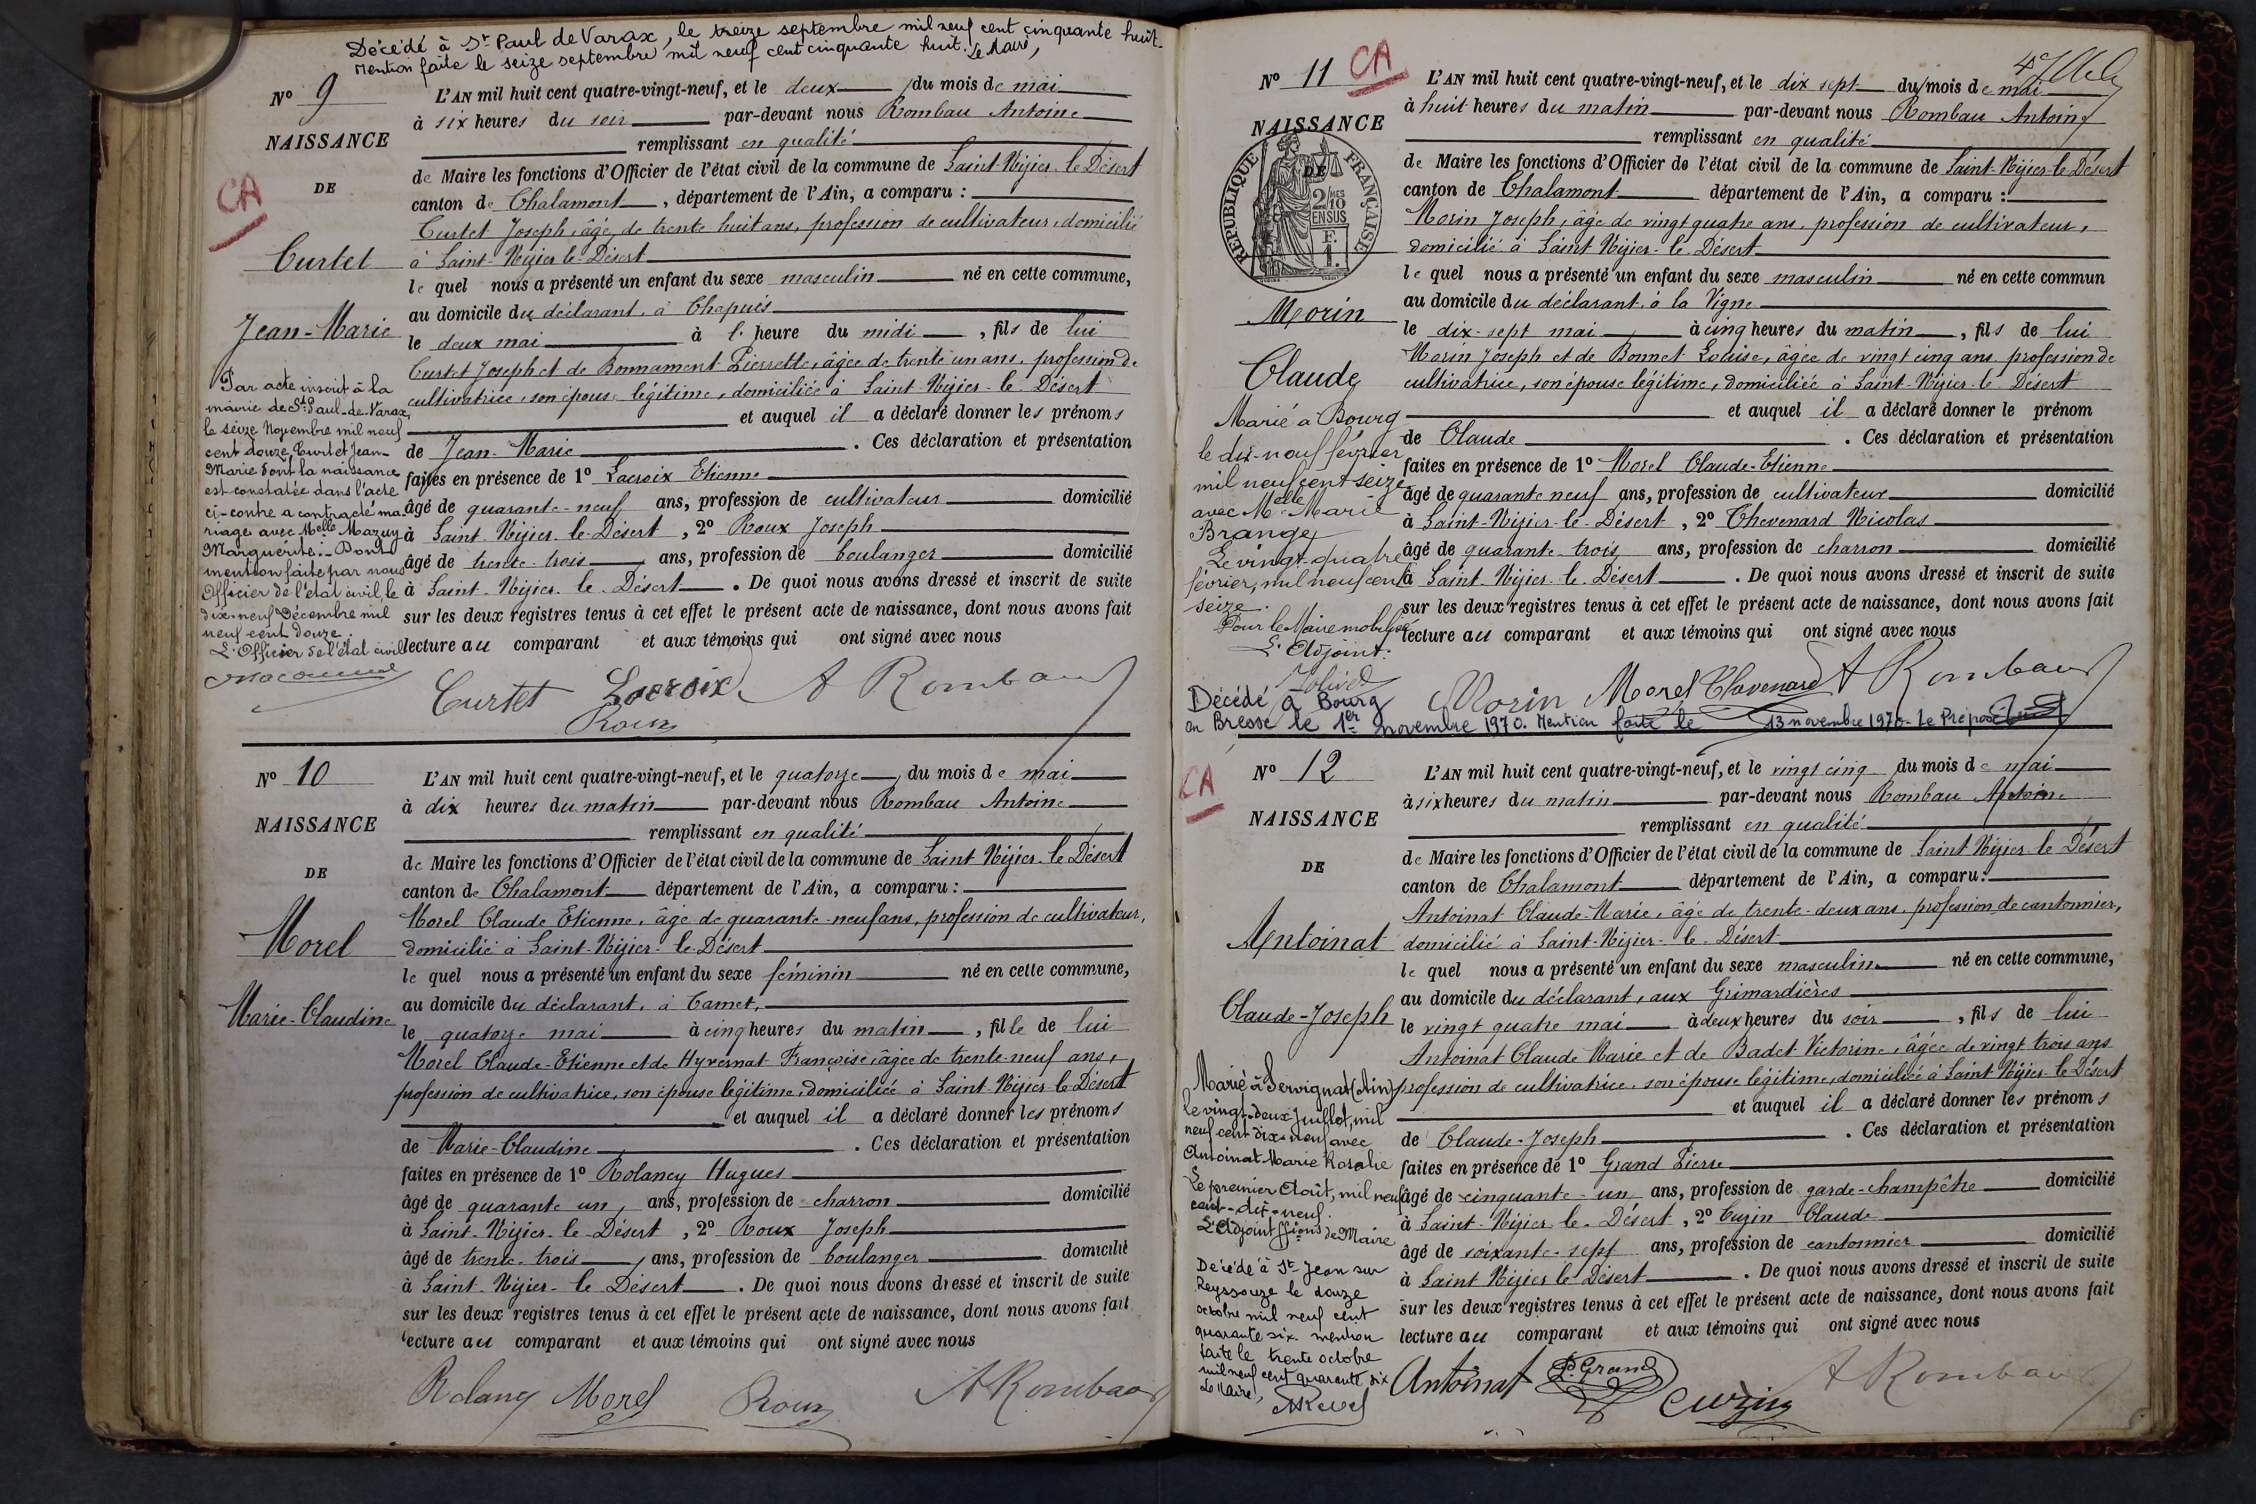 Décédé à St Paul de Varax, le treize septembre mil neuf cent cinquante huit.
Mention faite le seize septembre mil neuf cent cinquante huit. Le Maire,
N° 9
NAISSANCE
DE
CA
Curtet
Jean-Marie
Par acte inscrit à la
mairie de St Paul-de-Varax,
le seize Novembre mil neuf
cent douze, Curtet Jean-
Marie dont la naissance
est constatée dans l'acte
ci-contre a contracté ma-
riage avec Melle Mazuy
Marguerite. - Dont
mention faite par nous
Officier de l'état civil, le
dix-neuf Décembre mil
neuf cent douze.
L'Officier de l'état civil
L'AN mil huit cent quatre-vingt-neuf, et le deux du mois de mai
à six heures du soir par-devant nous Rombau Antoine
remplissant en qualité
de Maire les fonctions d'Officier de l'état civil de la commune de Saint-Nizier-le-Désert
canton de Chalamont, département de l'Ain, a comparu :
Curtet Joseph, âgé de trente huit ans, profession de cultivateur, domicilié
à Saint-Nizier-le-Désert
le quel nous a présenté un enfant du sexe masculin né en cette commune,
au domicile du déclarant, à Chapuis
le deux mai à l. heure du midi, fils de lui
Curtet Joseph et de Bonnament Pierrette, âgée de trente un ans, profession de
cultivatrice, son épouse légitime, domiciliée à Saint-Nizier-le-Désert
et auquel il a déclaré donner les prénoms
de Jean-Marie. Ces déclaration et présentation
faites en présence de 1° Lacroix Etienne
âgé de quarante-neuf ans, profession de cultivateur domicilié
à Saint-Nizier-le-Désert, 2° Roux Joseph
âgé de trente-trois ans, profession de boulanger domicilié
à Saint-Nizier-le-Désert. De quoi nous avons dressé et inscrit de suite
sur les deux registres tenus à cet effet le présent acte de naissance, dont nous avons fait
lecture au comparant et aux témoins qui ont signé avec nous
Curtet Lacroix A Rombau
Roux
N° 10
NAISSANCE
DE
Morel
Marie-Claudine
L'AN mil huit cent quatre-vingt-neuf, et le quatorze, du mois de mai
à dix heures du matin par-devant nous Rombau Antoine
remplissant en qualité
de Maire les fonctions d'Officier de l'état civil de la commune de Saint Nizier-le-Désert
canton de Chalamont département de l'Ain, a comparu :
Morel Claude-Etienne, âgé de quarante-neuf ans, profession de cultivateur,
domicilié à Saint-Nizier-le-Désert
le quel nous a présenté un enfant du sexe féminin né en cette commune,
au domicile du déclarant, à Camet,
le quatorze mai à cinq heures du matin, fille de lui
Morel Claude-Etienne et de Hyvernat Françoise, âgée de trente neuf ans,
profession de cultivatrice, son épouse légitime, domiciliée à Saint-Nizier-le-Désert
et auquel il a déclaré donner les prénoms
de Marie-Claudine. Ces déclaration et présentation
faites en présence de 1° Rolancy Hugues
âgé de quarante un, ans, profession de charron domicilié
à Saint-Nizier-le-Désert, 2° Roux Joseph
âgé de trente-trois, ans, profession de boulanger domicilié
à Saint-Nizier-le-Désert. De quoi nous avons dressé et inscrit de suite
sur les deux registres tenus à cet effet le présent acte de naissance, dont nous avons fait
lecture au comparant et aux témoins qui ont signé avec nous
Rolancy Morel Roux A Rombau
N° 11 CA
NAISSANCE
DE
REPUBLIQUE FRANÇAISE
2 MES
/10
EN SUS
F.
1.
Morin
Claude
Marié à Bourg
le dix-neuf février
mil neuf cent seize
avec Melle Marie
Brange
Le vingt-quatre
février, mil neuf cent
seize.
Pour le Maire mobilisé
L'Adjoint.
L'AN mil huit cent quatre-vingt-neuf, et le dix sept du mois de mai
à huit heures du matin par-devant nous Rombau Antoine
remplissant en qualité
de Maire les fonctions d'Officier de l'état civil de la commune de Saint-Nizier-le-Désert
canton de Chalamont département de l'Ain, a comparu :
Morin Joseph, âgé de vingt quatre ans, profession de cultivateur,
domicilié à Saint Nizier-le-Désert
le quel nous a présenté un enfant du sexe masculin né en cette commun
au domicile du déclarant, à la Vigne
le dix-sept mai à cinq heures du matin, fils de lui
Morin Joseph et de Bonnet Louise, âgée de vingt cinq ans, profession de
cultivatrice, son épouse légitime, domiciliée à Saint-Nizier-le-Désert
et auquel il a déclaré donner le prénom
de Claude. Ces déclaration et présentation
faites en présence de 1° Morel Claude-Etienne
âgé de quarante neuf ans, profession de cultivateur domicilié
à Saint-Nizier-le-Désert, 2° Chevenard Nicolas
âgé de quarante-trois, ans, profession de charron domicilié
à Saint-Nizier-le-Désert. De quoi nous avons dressé et inscrit de suite
sur les deux registres tenus à cet effet le présent acte de naissance, dont nous avons fait
lecture au comparant et aux témoins qui ont signé avec nous
Morin Morel Chevenard A Rombau
Décédé à Bourg
en Bresse le 1er novembre 1970. Mention faite le 13 novembre 1970. Le Préposé
CA
N° 12
NAISSANCE
DE
Antoinat
Claude-Joseph
Marié à Servignat (Ain)
le vingt-deux Juillet, mil
neuf cent dix-neuf avec
Antoinat Marie Rosalie
Le premier Août, mil neuf
cent-dix-neuf.
L'Adjoint ffions de Maire
Décédé à St Jean sur
Reyssouze le douze
octobre mil neuf cent
quarante six. mention
faite le trente octobre
mil neuf cent quarante six
Le Maire,
L'AN mil huit cent quatre-vingt-neuf, et le vingt cinq du mois de mai
à six heures du matin par-devant nous Rombau Antoine
remplissant en qualité
de Maire les fonctions d'Officier de l'état civil de la commune de Saint Nizier-le-Désert
canton de Chalamont département de l'Ain, a comparu :
Antoinat Claude-Marie, âgé de trente-deux ans, profession de cantonnier,
domicilié à Saint-Nizier-le-Désert
le quel nous a présenté un enfant du sexe masculin né en cette commune,
au domicile du déclarant, aux Grimardières
le vingt quatre mai à deux heures du soir, fils de lui
Antoinat Claude Marie et de Badet Victorine, âgée de vingt trois ans
profession de cultivatrice, son épouse légitime, domiciliée à Saint Nizier-le-Désert
et auquel il a déclaré donner les prénoms
de Claude-Joseph. Ces déclaration et présentation
faites en présence de 1° Grand Pierre
âgé de cinquante-un ans, profession de garde-champêtre domicilié
à Saint-Nizier-le-Désert, 2° Cuzin Claude
âgé de soixante-sept ans, profession de cantonnier domicilié
à Saint Nizier le Désert. De quoi nous avons dressé et inscrit de suite
sur les deux registres tenus à cet effet le présent acte de naissance, dont nous avons fait
lecture au comparant et aux témoins qui ont signé avec nous
Antoinat P. Grand Cuzin A Rombau